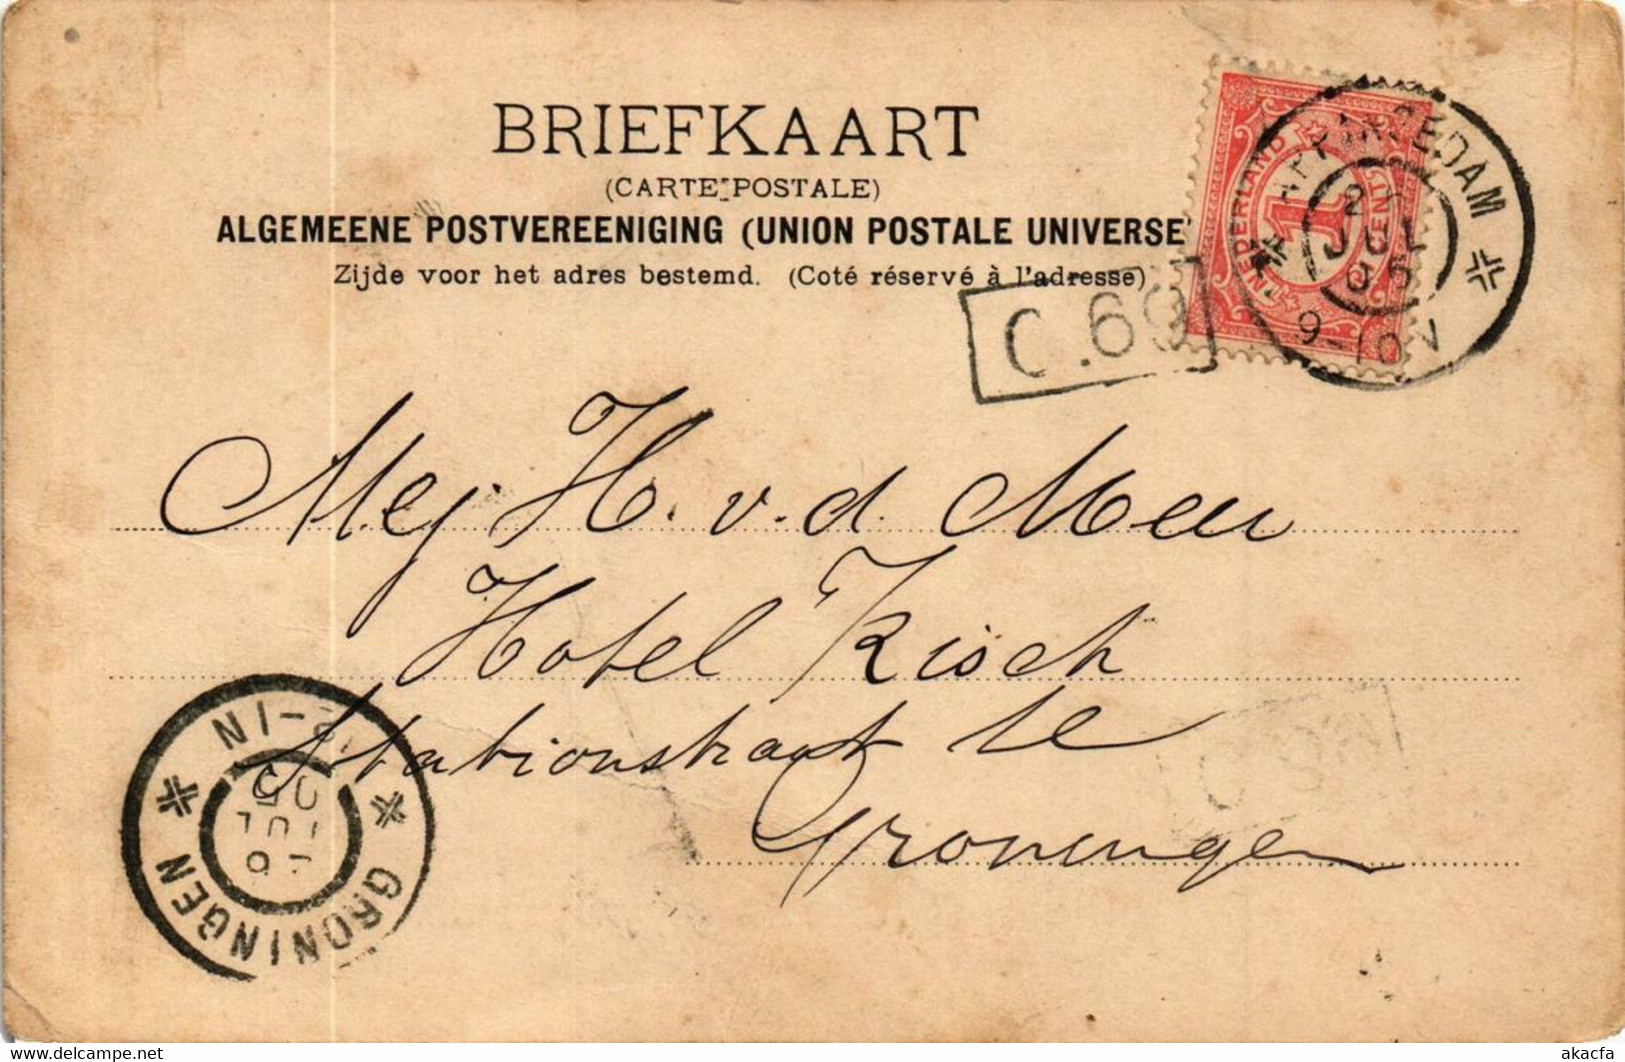 BRIEFKAART
(CARTE POSTALE)
ALGEMEENE POSTVEREENIGING (UNION POSTALE UNIVERSE
Zijde voor het adres bestemd. (Coté réservé à l'adresse)
NEDERLAND
1
CENT
APPINGEDAM
JUL
05
9-10V
C.69
Mej H. v. d. Meer
Hotel Risch
Stationstraat
Groningen
GRONINGEN
JUL
05
12-1N
akacfa